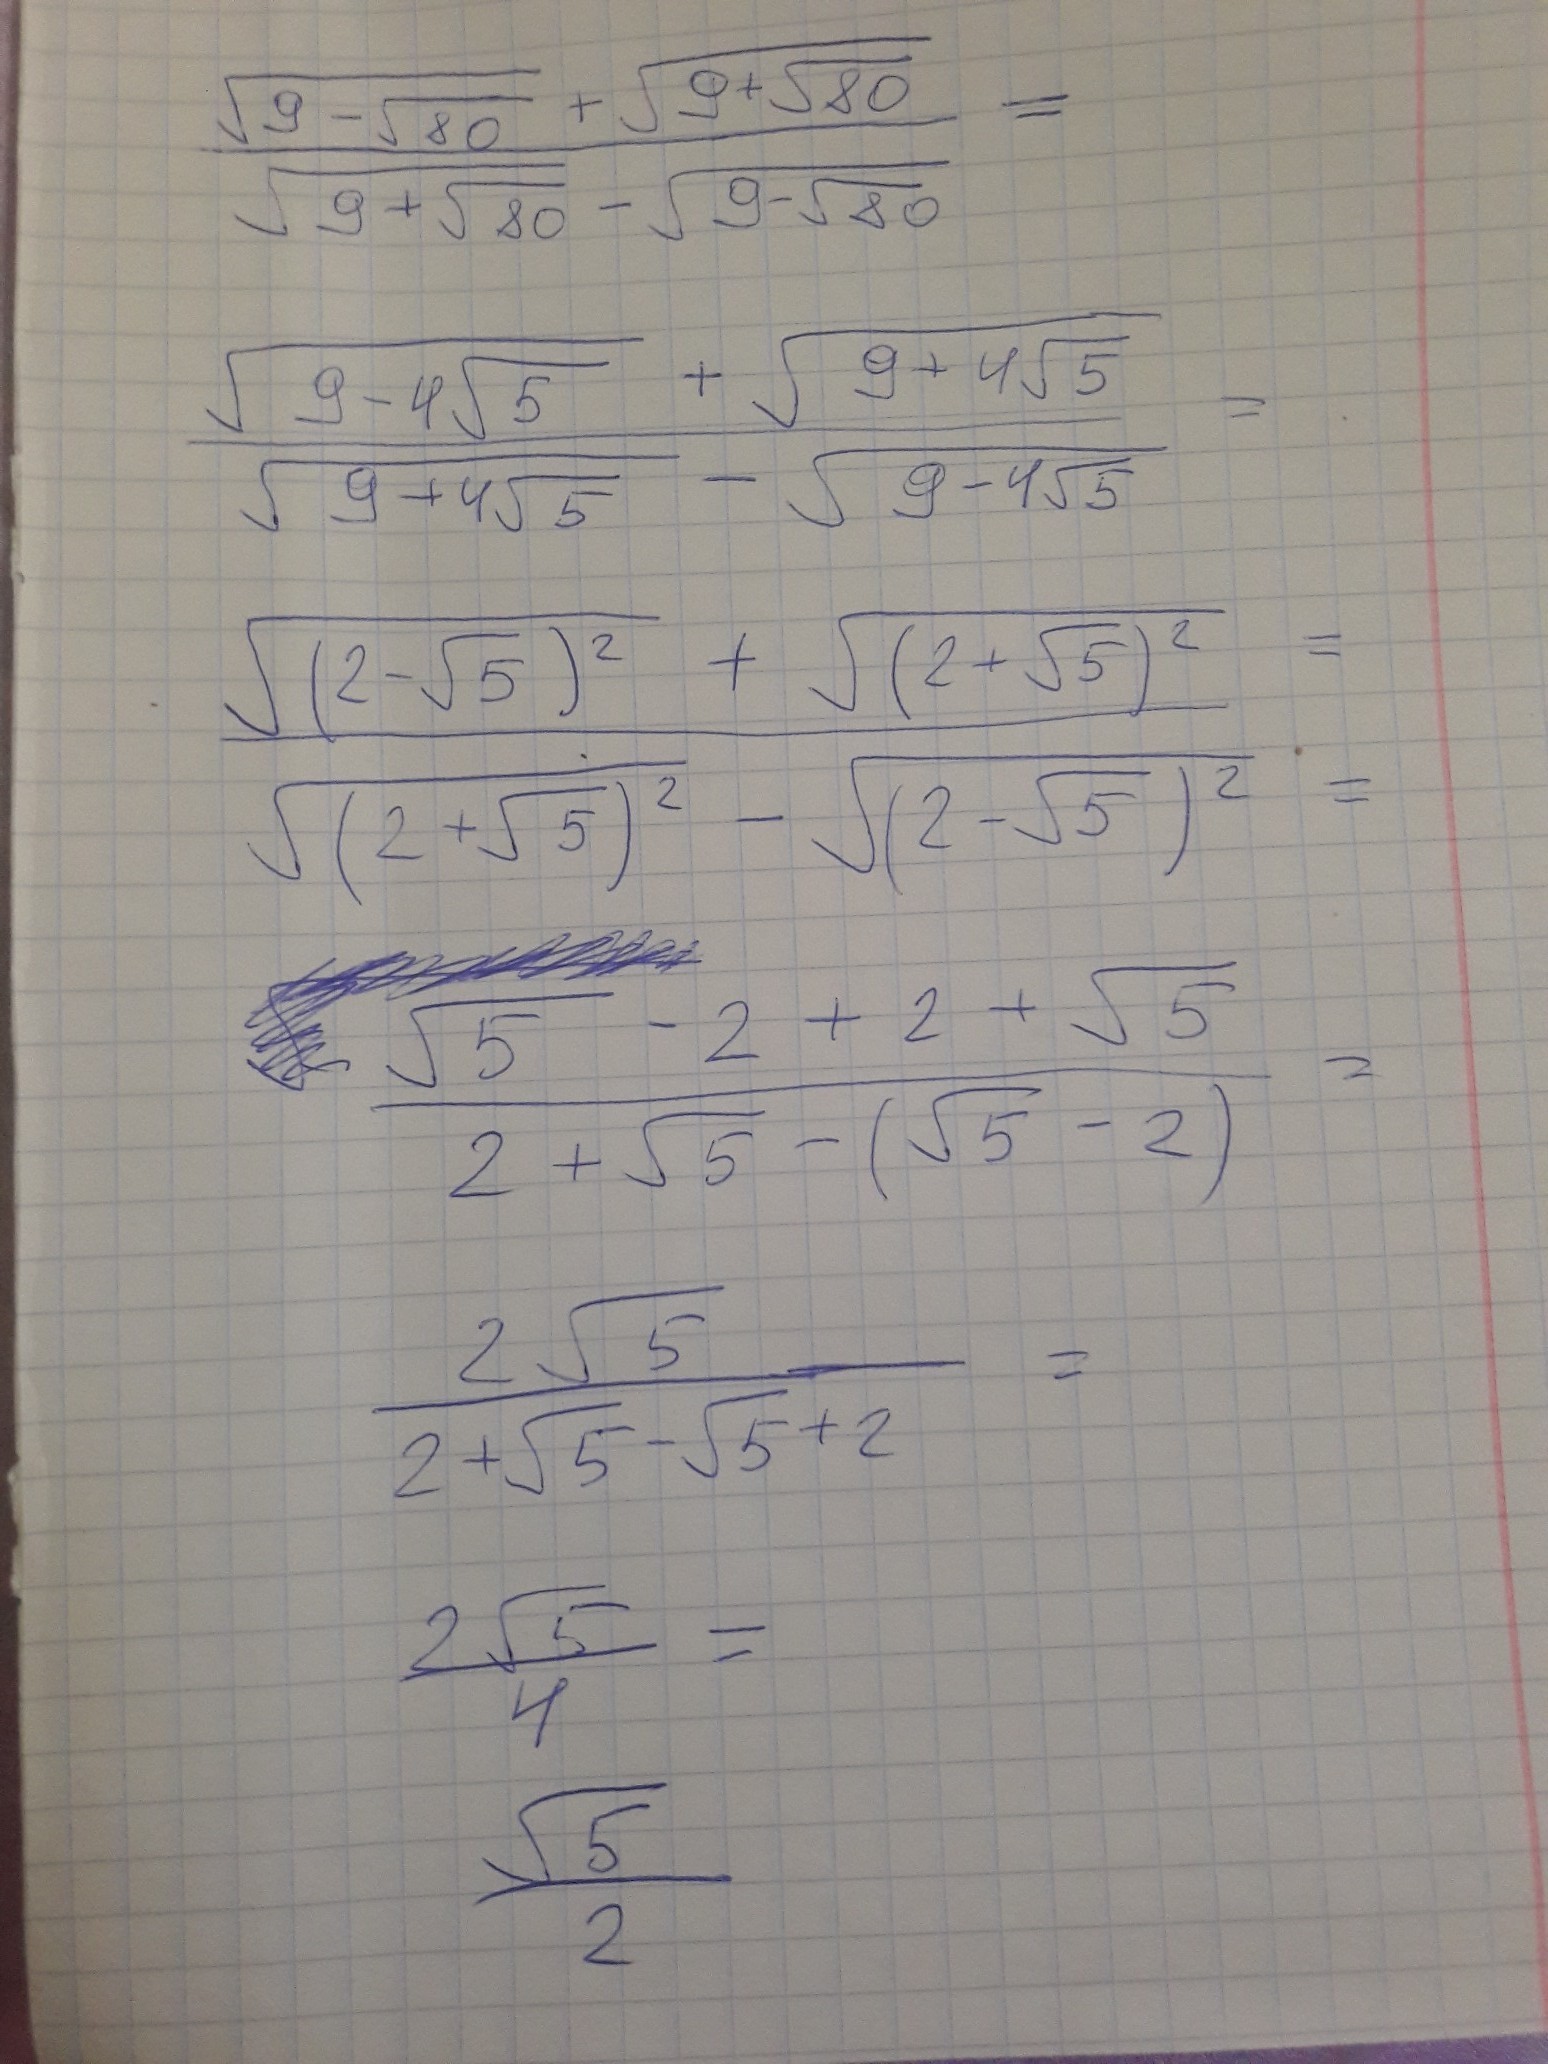 √(9-√80) + √(9+√80) =
√(9+√80) - √(9-√80)
√(9-4√5) + √(9+4√5) =
√(9+4√5) - √(9-4√5)
√((2-√5)²) + √((2+√5)²) =
√((2+√5)²) - √((2-√5)²) =
√5 - 2 + 2 + √5 =
2 + √5 - (√5 - 2)
2√5 =
2+√5-√5+2
2√5 =
4
√5
2